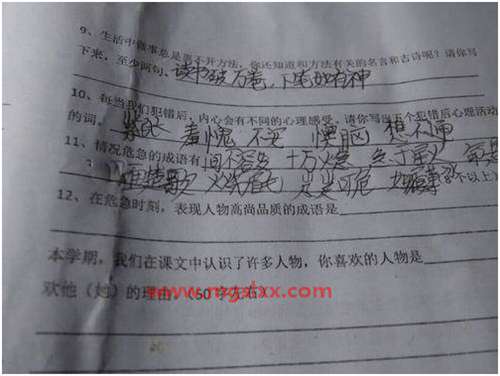 9、生活中做事总是离不开方法，你还知道和方法有关的名言和古诗呢？请你写
下来，至少两句。读书破万卷，下笔如有神
10、每当我们犯错后，内心会有不同的心理感受。请你写出五个犯错后心理活动
的词。 羞愧 不安 懊脑 想不开
11、情况危急的成语有 间不容发 十万火急
岌岌可危 个以上）
12、在危急时刻，表现人物高尚品质的成语是
本学期，我们在课文中认识了许多人物，你喜欢的人物是
欢他（她）的理由：（50字左右）
www.mgsbxx.com